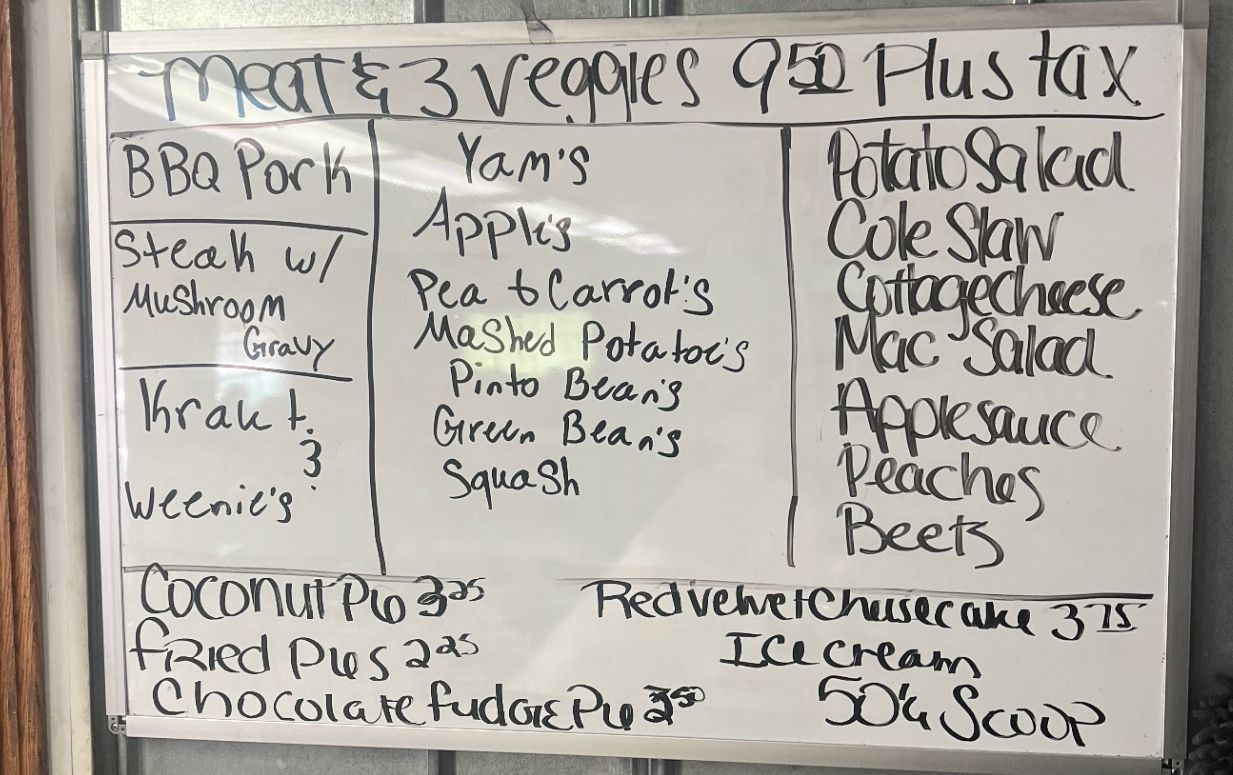 Meat & 3 Veggies 9 50 Plus tax
BBQ Pork
Steak w/
Mushroom
Gravy
Kraut
3
Weenie's
Yam's
Apple's
Pea & Carrot's
Mashed Potatoe's
Pinto Bean's
Green Bean's
Squash
Potato Salad
Cole Slaw
Cottage cheese
Mac Salad
Applesauce
Peaches
Beets
Coconut Pie 3 25
fried Pies 2 25
Chocolate fudge Pie 3 50
Red velvet Cheesecake 3 75
Ice cream
50¢ Scoop